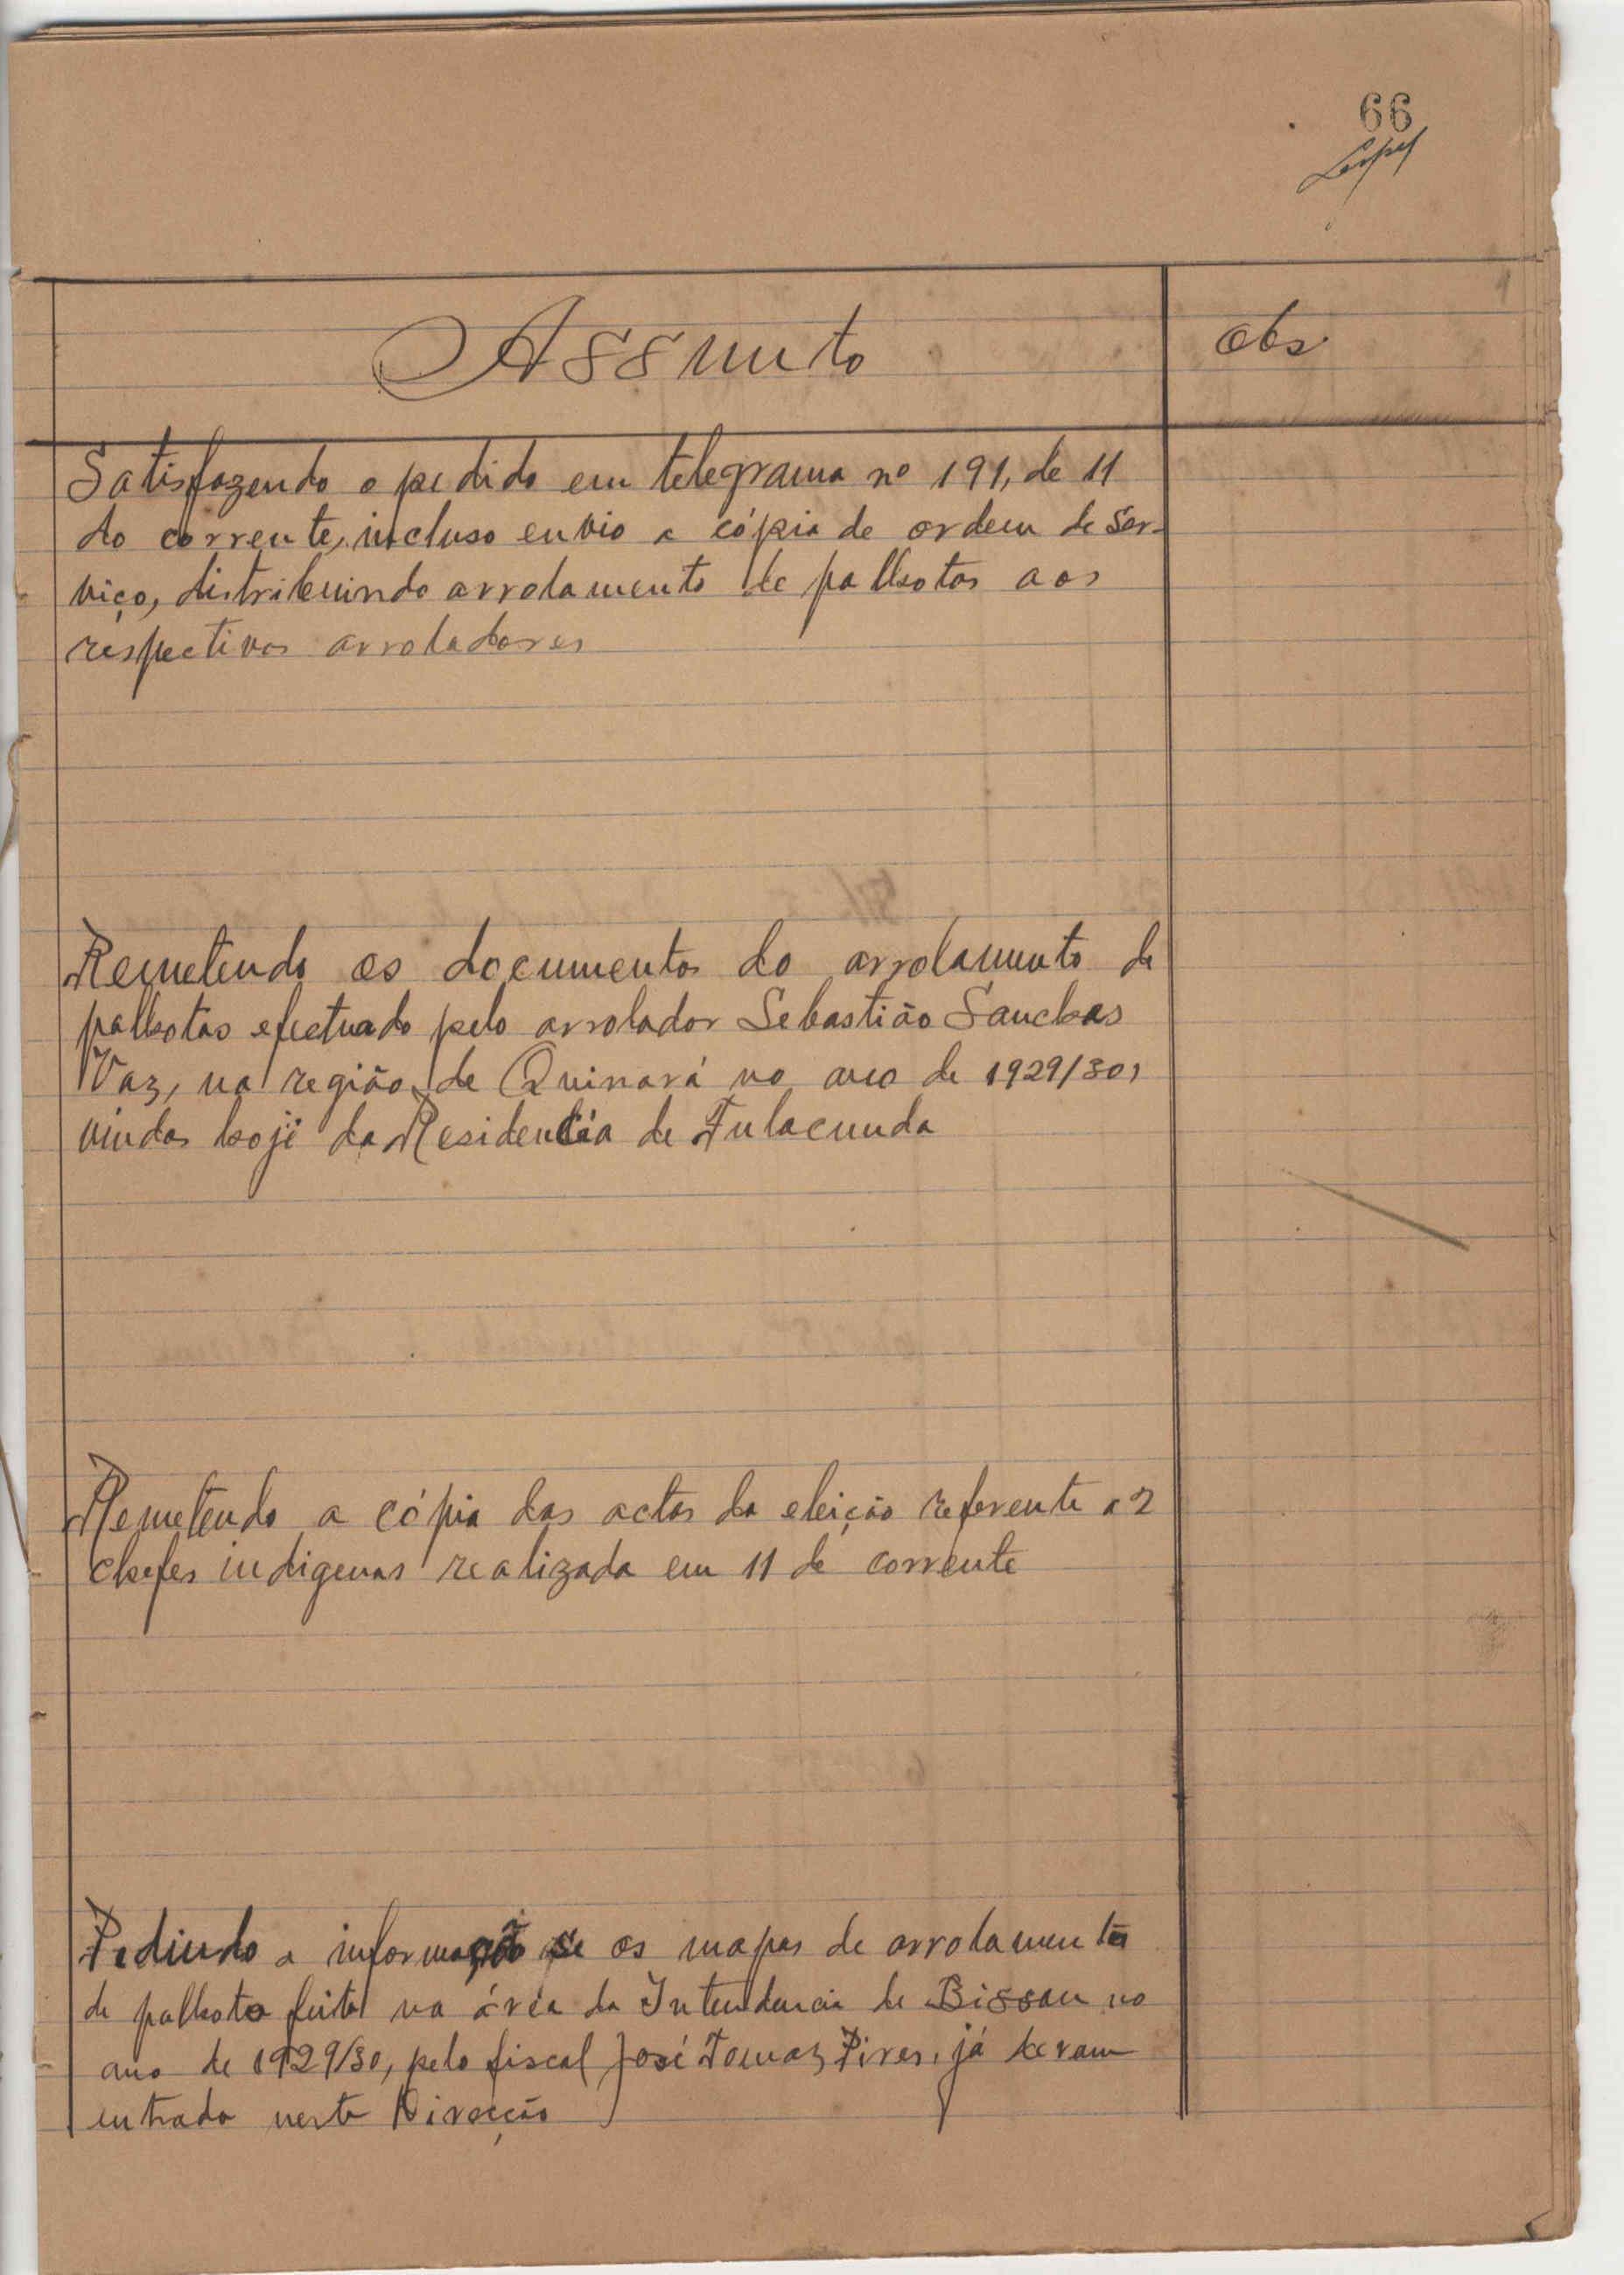 66
Assunto
obs
Satisfazendo o pedido em telegrama nº 191, de 11
do corrente, incluso envio a cópia de ordem de ser-
viço, distribuindo arrolamento de palhotas aos
respectivos arroladores
Remetendo os documentos do arrolamento de
palhotas efectuado pelo arrolador Sebastião Sanchas
Vaz, na região de Quinará no ano de 1929/30,
vindos hoje da Residencia de Fulacunda
Remetendo a cópia das actas da eleição referente a 2
chefes indigenas realizada em 11 de corrente
Pedindo a informação se os mapas de arrolamento
de palhota feita na área da Intendencia de Bissau no
ano de 1929/30, pelo fiscal José Tomaz Pires, já deram
entrada nesta Direcção